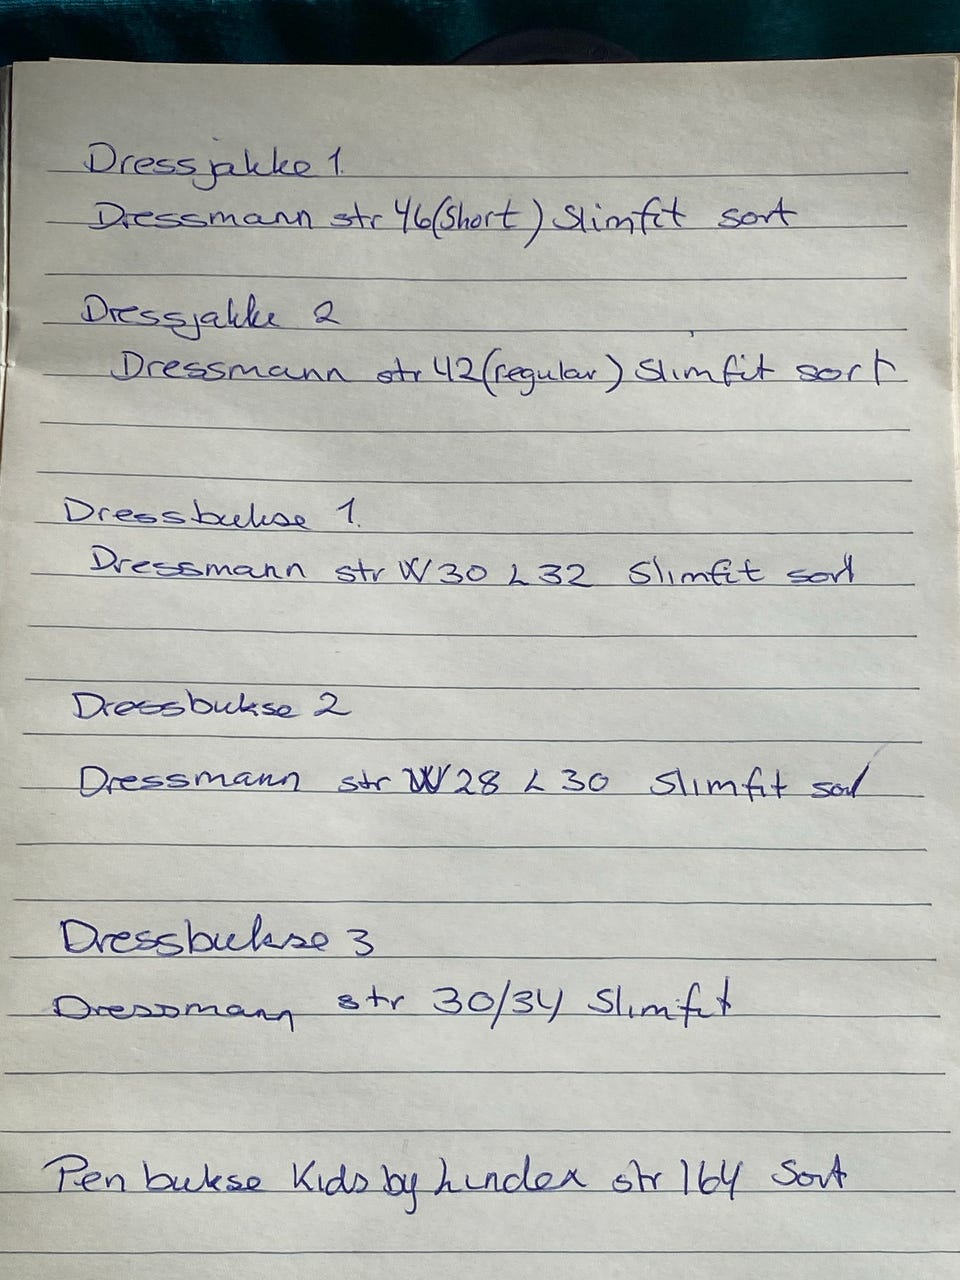 Dressjakke 1.
Dressmann str 46(Short) Slimfit sort
Dressjakke 2
Dressmann str 42(regular) Slimfit sort
Dressbukse 1.
Dressmann str W30 L32 Slimfit sort
Dressbukse 2
Dressmann str W28 L30 Slimfit sort
Dressbukse 3
Dressmann str 30/34 Slimfit
Pen bukse Kids by Lindex str 164 Sort